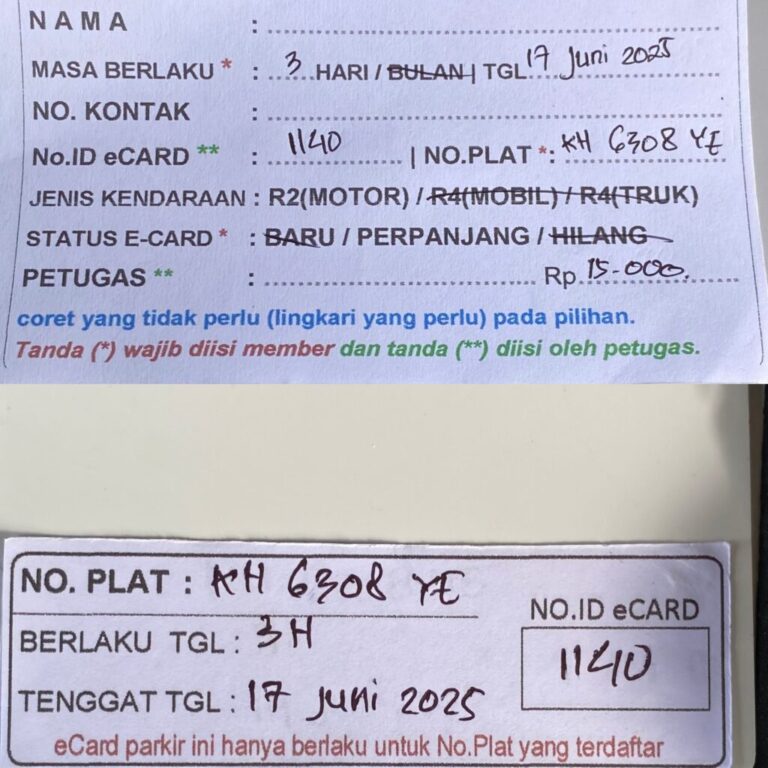 NAMA : 
MASA BERLAKU * : 3 HARI / BULAN | TGL 17 Juni 2025
NO. KONTAK : 
No.ID eCARD ** : 1140 | NO.PLAT *: KH 6308 YE
JENIS KENDARAAN : R2(MOTOR) / R4(MOBIL) / R4(TRUK)
STATUS E-CARD * : BARU / PERPANJANG / HILANG
PETUGAS ** : Rp. 15-000.
coret yang tidak perlu (lingkari yang perlu) pada pilihan.
Tanda (*) wajib diisi member dan tanda (**) diisi oleh petugas.
NO. PLAT : KH 6308 YE
BERLAKU TGL : 3H
TENGGAT TGL : 17 Juni 2025
NO.ID eCARD
1140
eCard parkir ini hanya berlaku untuk No.Plat yang terdaftar